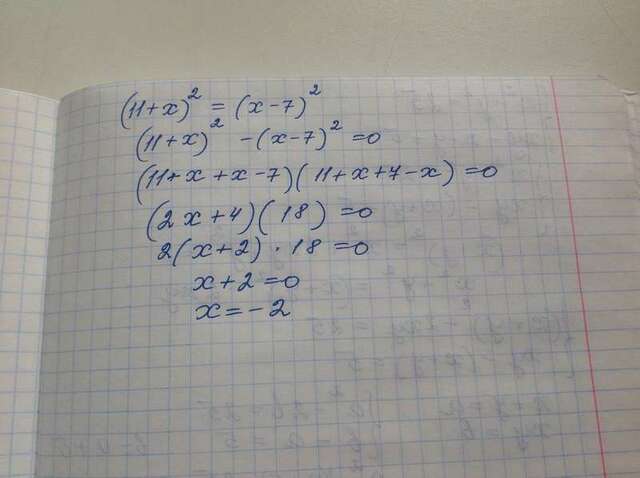 (11+x)² = (x-7)²
(11+x)² -(x-7)² =0
(11+x+x-7)(11+x+7-x)=0
(2x+4)(18)=0
2(x+2)·18=0
x+2=0
x=-2